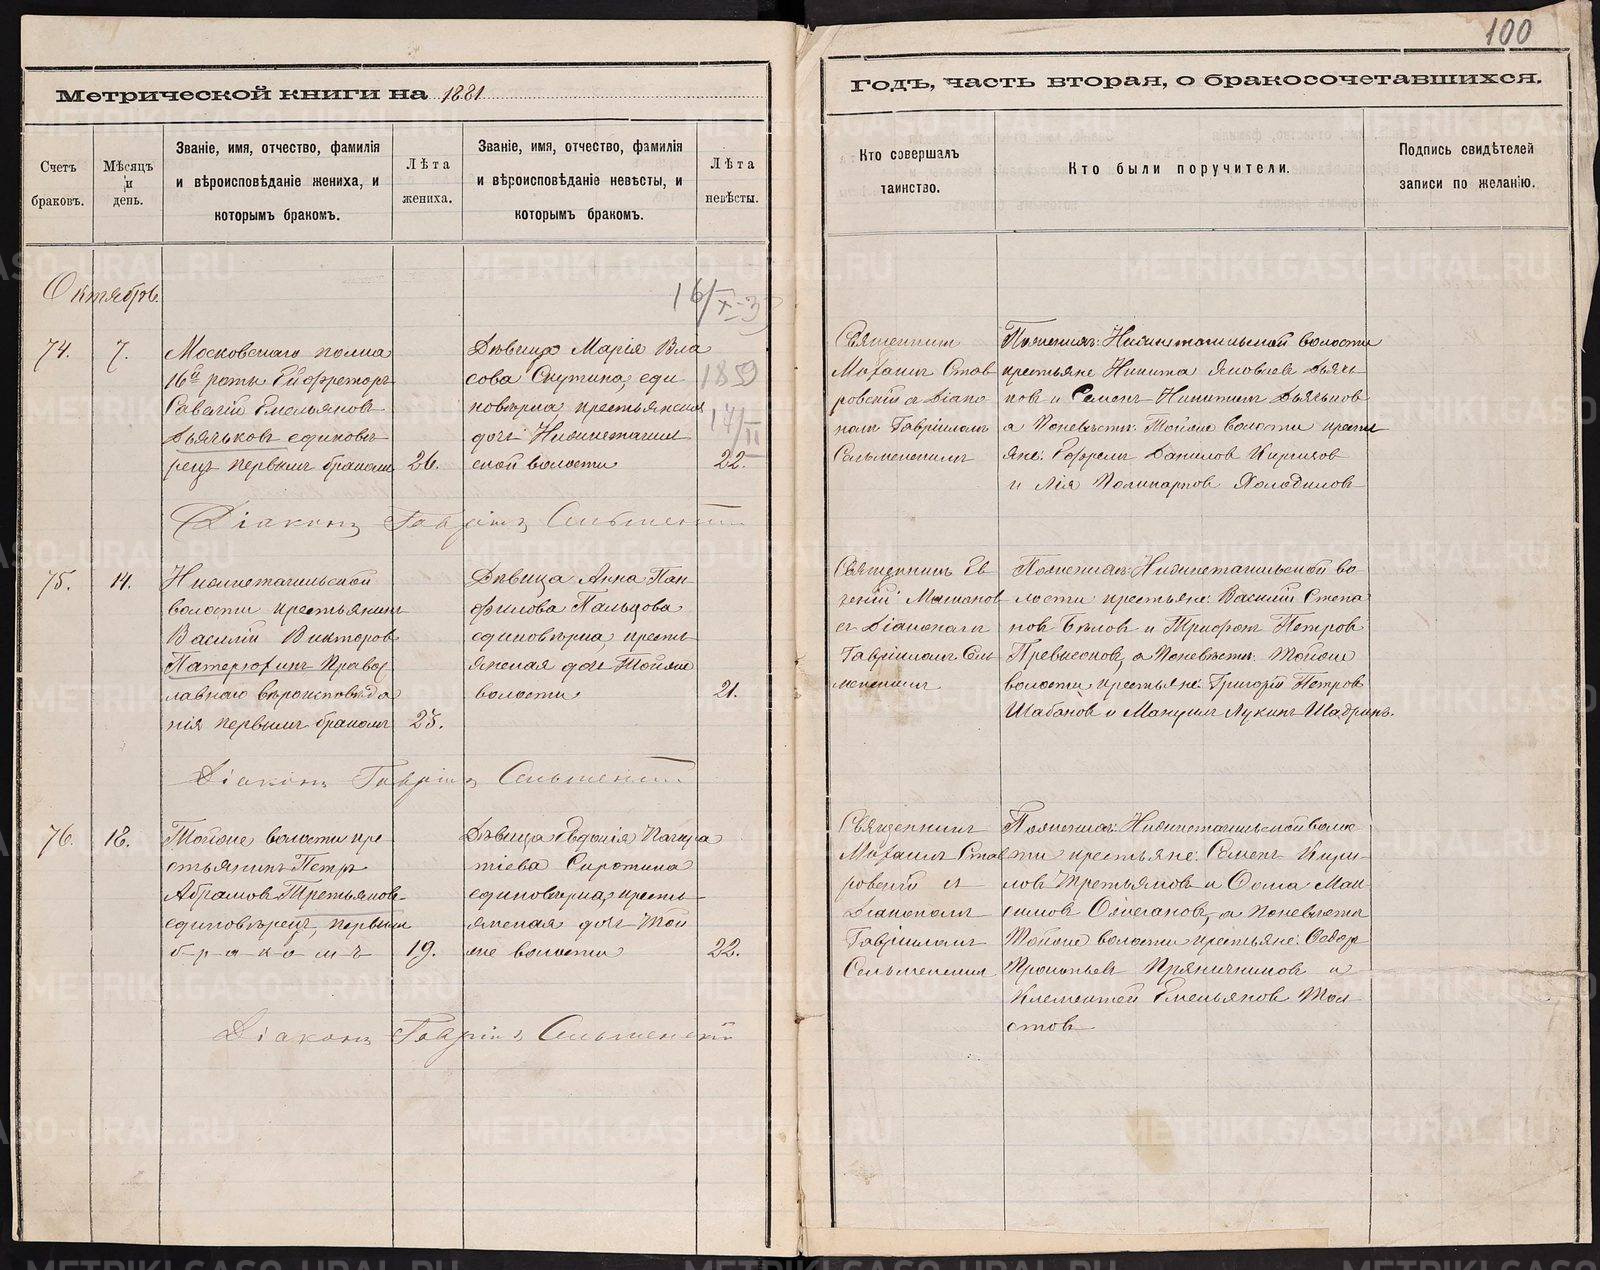 100
Метрической книги на 1881
годъ, часть вторая, о бракосочетавшихся.
Счетъ браковъ.
Мѣсяцъ и день.
Званіе, имя, отчество, фамилія и вѣроисповѣданіе жениха, и которымъ бракомъ.
Лѣта жениха.
Званіе, имя, отчество, фамилія и вѣроисповѣданіе невѣсты, и которымъ бракомъ.
Лѣта невѣсты.
Кто совершалъ таинство.
Кто были поручители.
Подпись свидѣтелей записи по желанію.
Октябрь.
74.
7.
Московскаго полка
16й роты Ефрейторъ
Савагій Емельяновъ
Дьячьковъ единовѣ
рецъ первымъ бракомъ
26.
Дѣвица Марія Вла
сова Скутина, еди
новѣрка, крестьянская
дочь Нижнетагиль
ской волости
22.
16/X-39
1859
17/II
Священникъ
Михаилъ Став
ровскій съ Діако
номъ Гавріиломъ
Сельменскимъ
По женихѣ: Нижнетагильской волости
крестьяне Никита Яковлевъ Дьячь
ковъ и Семенъ Никитинъ Дьячьковъ
а по невѣстѣ: Тойже волости кресть
яне: Ефремъ Даниловъ Кириковъ
и Лія Поликарповъ Холодиловъ
Діаконъ Гавріилъ Сельменскій
75.
14.
Нижнетагильской
волости крестьянинъ
Василій Викторовъ
Патерюхинъ Право
славнаго вѣроисповѣда
нія первымъ бракомъ
25.
Дѣвица Анна Пан
филова Пальцова
единовѣрка, кресть
янская дочь Тойже
волости
21.
Священникъ Ев
геній
съ Діакономъ
Гавріиломъ Сель
менскимъ
По женихѣ: Нижнетагильской во
лости крестьяне: Василій Степа
новъ Бѣловъ и Трифонъ Петровъ
а по невѣстѣ: Тойже
волости крестьяне: Григорій Петровъ
Шабановъ и Мануилъ Лукинъ Шадринъ.
Діаконъ Гавріилъ Сельменскій
76.
18.
Тойже волости кре
стьянинъ Петръ
Абрамовъ Третьяковъ
единовѣрецъ, первымъ
бракомъ
19.
Дѣвица Евдокія Панкра
тіева Сиротина
единовѣрка, кресть
янская дочь Той
же волости
22.
Священникъ
Михаилъ Став
ровскій съ
Діакономъ
Гавріиломъ
Сельменскимъ
По женихѣ: Нижнетагильской воло
сти крестьяне: Семенъ Кири
ловъ Третьяковъ и Ѳома Мак
симовъ Ожегановъ, а по невѣстѣ
Тойже волости крестьяне: Ѳедоръ
Прокопьевъ Пряничниковъ и
Клементей Емельяновъ Тол
стовъ
Діаконъ Гавріилъ Сельменскій
METRIKI.GASO-URAL.RU